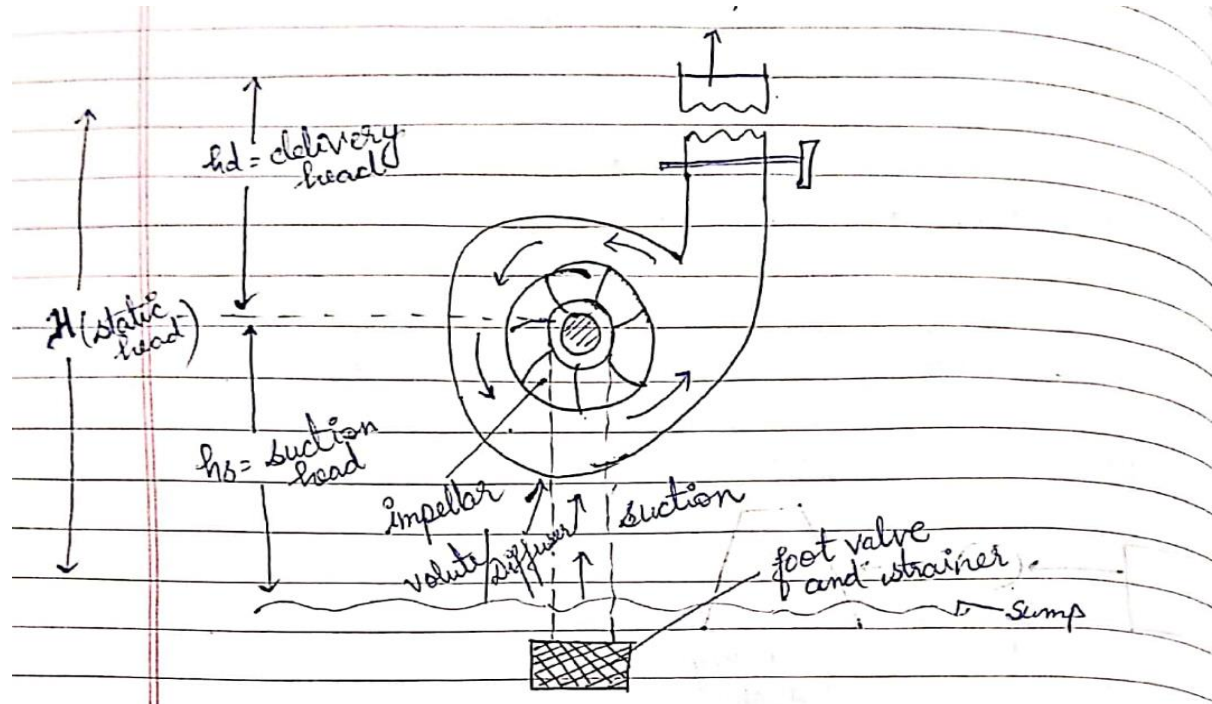 hd = delivery
head
H (static
head)
hs = suction
head
impellar
volute/Diffuser
suction
foot valve
and strainer
sump